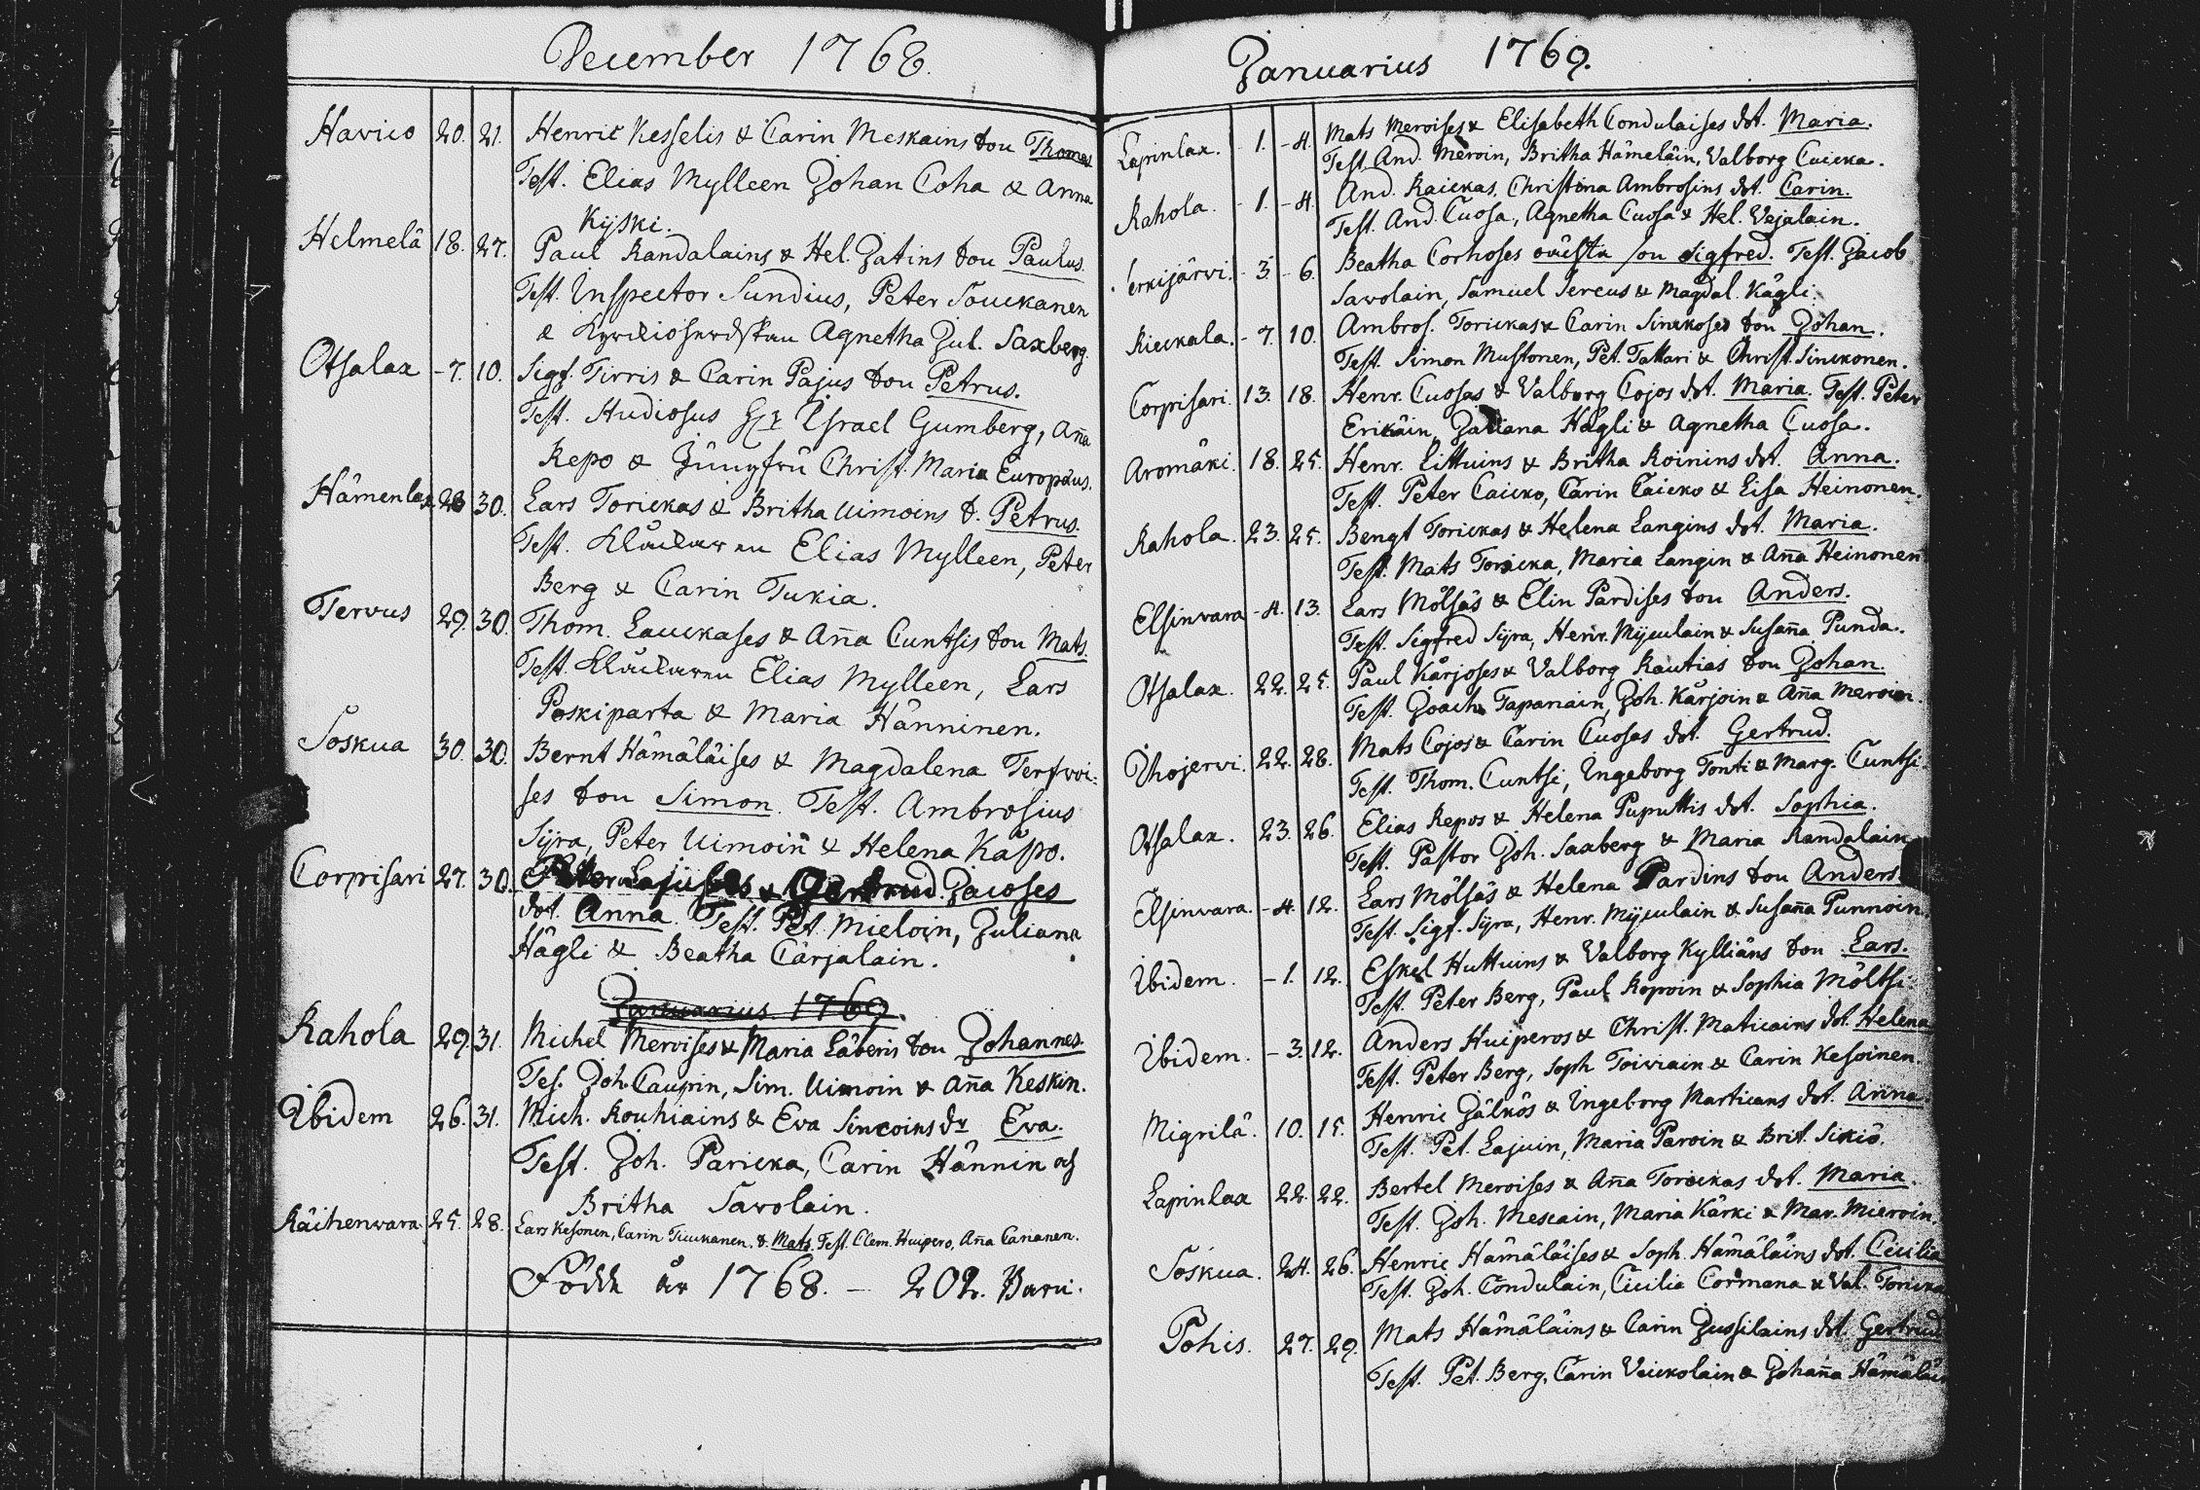 December 1768.
Havico 20. 21. Henric Kesselis & Carin Meskains son Thomas
Test. Elias Mylleen Johan Coha & Anna
Kyski.
Helmelä 18. 27. Paul Randalains & Hel. Jatins son Paulus.
Test. Inspector Sundius, Peter Souckanen
& Agnetha Jul. Saxberg.
Otsalax - 7. 10. Sigf. Tirris & Carin Pajus son Petrus.
Test. Studiosus Hr Israel Gumberg, Aña
Repo & Jungfru Christ. Maria Europæus.
Hämenlax 28 30. Lars Torickas & Britha Uimoins s. Petrus.
Test. Klåckaren Elias Mylleen, Peter
Berg & Carin Tukia.
Tervus 29. 30. Thom. Lauckases & Aña Cuntsis son Mats.
Test. Klåckaren Elias Mylleen, Lars
Poskiparta & Maria Hänninen.
Soskua 30. 30. Bernt Hämäläises & Magdalena Terfwoi-
ses son Simon. Test. Ambrosius
Syra, Peter Uimoiñ & Helena Käpo.
Corpisari 27. 30. Peter & Gertrud Jacoses
dot. Anna. Test. Pet. Mieloin, Juliana
Hägli & Beatha Cärjalain.
Januarius 1769.
Rahola 29. 31. Michel Meroises & Maria Läberis son Johannes.
Tes. Joh. Caupin, Sim. Uimoin & Aña Keskin.
Ibidem 26. 31. Mich. Rouhiains & Eva Sincoins dr Eva.
Test. Joh. Paricka, Carin Hännin och
Britha Savolain.
Räihenvara 25. 28. Lars Kesonen, Carin Tiuckanen. s. Mats. Test. Clem. Huipero, Aña Cananen.
Födde år 1768. — 202. Barn.
Januarius 1769.
Lapinlax. - 1. - 4. Mats Meroises & Elisabeth Condulaises dot. Maria.
Test. And. Meroin, Britha Hämeläin, Valborg Caicka.
Rahola. - 1. - 4. And. Raickas, Christina Ambrosins dot. Carin.
Test. And. Cuosa, Agnetha Cuosa & Hel. Vejalain.
- 3. - 6. Beatha Corhoses oächta son Sigfred. Test. Jacob
Savolain, Samuel Sereus & Magdal. Kägli.
Rieckala. - 7. 10. Ambros. Torickas & Carin Sinckoses son Johan.
Test. Simon Mustonen, Pet. Tattari & Christ. Sinckonen.
Corpisari. 13. 18. Henr. Cuosas & Valborg Cojos dot. Maria. Test. Peter
Erikäin, Juliana Hägli & Agnetha Cuosa.
Aromäki. 18. 25. Henr. Littuins & Britha Roinins dot. Anna.
Test. Peter Caicko, Carin Caicko & Lisa Heinonen.
Rahola. 23. 25. Bengt Torickas & Helena Langins dot. Maria.
Test. Mats Toricka, Maria Langin & Aña Heinonen
Elsinvara - 4. 13. Lars Mölsäs & Elin Pardises son Anders.
Test. Sigfred Syra, Henr. Myculain & Susaña Punda.
Otsalax. 22. 25. Paul Kärjoses & Valborg Rautias son Johan.
Test. Joach. Tapanain, Joh. Kärjoin & Aña Meroin.
Ihojervi. 22. 28. Mats Cojos & Carin Cuosas dot. Gertrud.
Test. Thom. Cuntsi, Ingeborg Tonti & Marg. Cuntsi.
Otsalax. 23. 26. Elias Repos & Helena Puputtis dot. Sophia.
Test. Pastor Joh. Saxberg & Maria Randalain
Elsinvara. - 4. 12. Lars Mölsäs & Helena Pardins son Anders
Test. Sigf. Syra, Henr. Myculain & Susaña Punnoin.
Ibidem. - 1. 12. Eskel Huttuins & Valborg Kylliäns son Lars.
Test. Peter Berg, Paul Ropoin & Sophia Möltsi.
Ibidem. - 3. 12. Anders Huiperos & Christ. Maticains dot. Helena
Test. Peter Berg, Soph Toiviain & Carin Kesoinen.
Migrilä. 10. 15. Henric Jälkös & Ingeborg Marticans dot. Anna
Test. Pet. Lajuin, Maria Paroin & Brit. Sikiö.
Lapinlax 22. 22. Bertel Meroises & Aña Torickas dot. Maria.
Test. Joh. Mescain, Maria Kärki & Mar. Mieroin.
Soskua. 24. 26. Henric Hämäläises & Soph. Hämäläins dot. Cicilia
Test. Joh. Condulain, Cicilia Cormana & Val. Toricka
Pohis. 27. 29. Mats Hämäläins & Carin Jussilains dot. Gertrud
Test. Pet. Berg, Carin Veickolain & Johaña Hämäläin